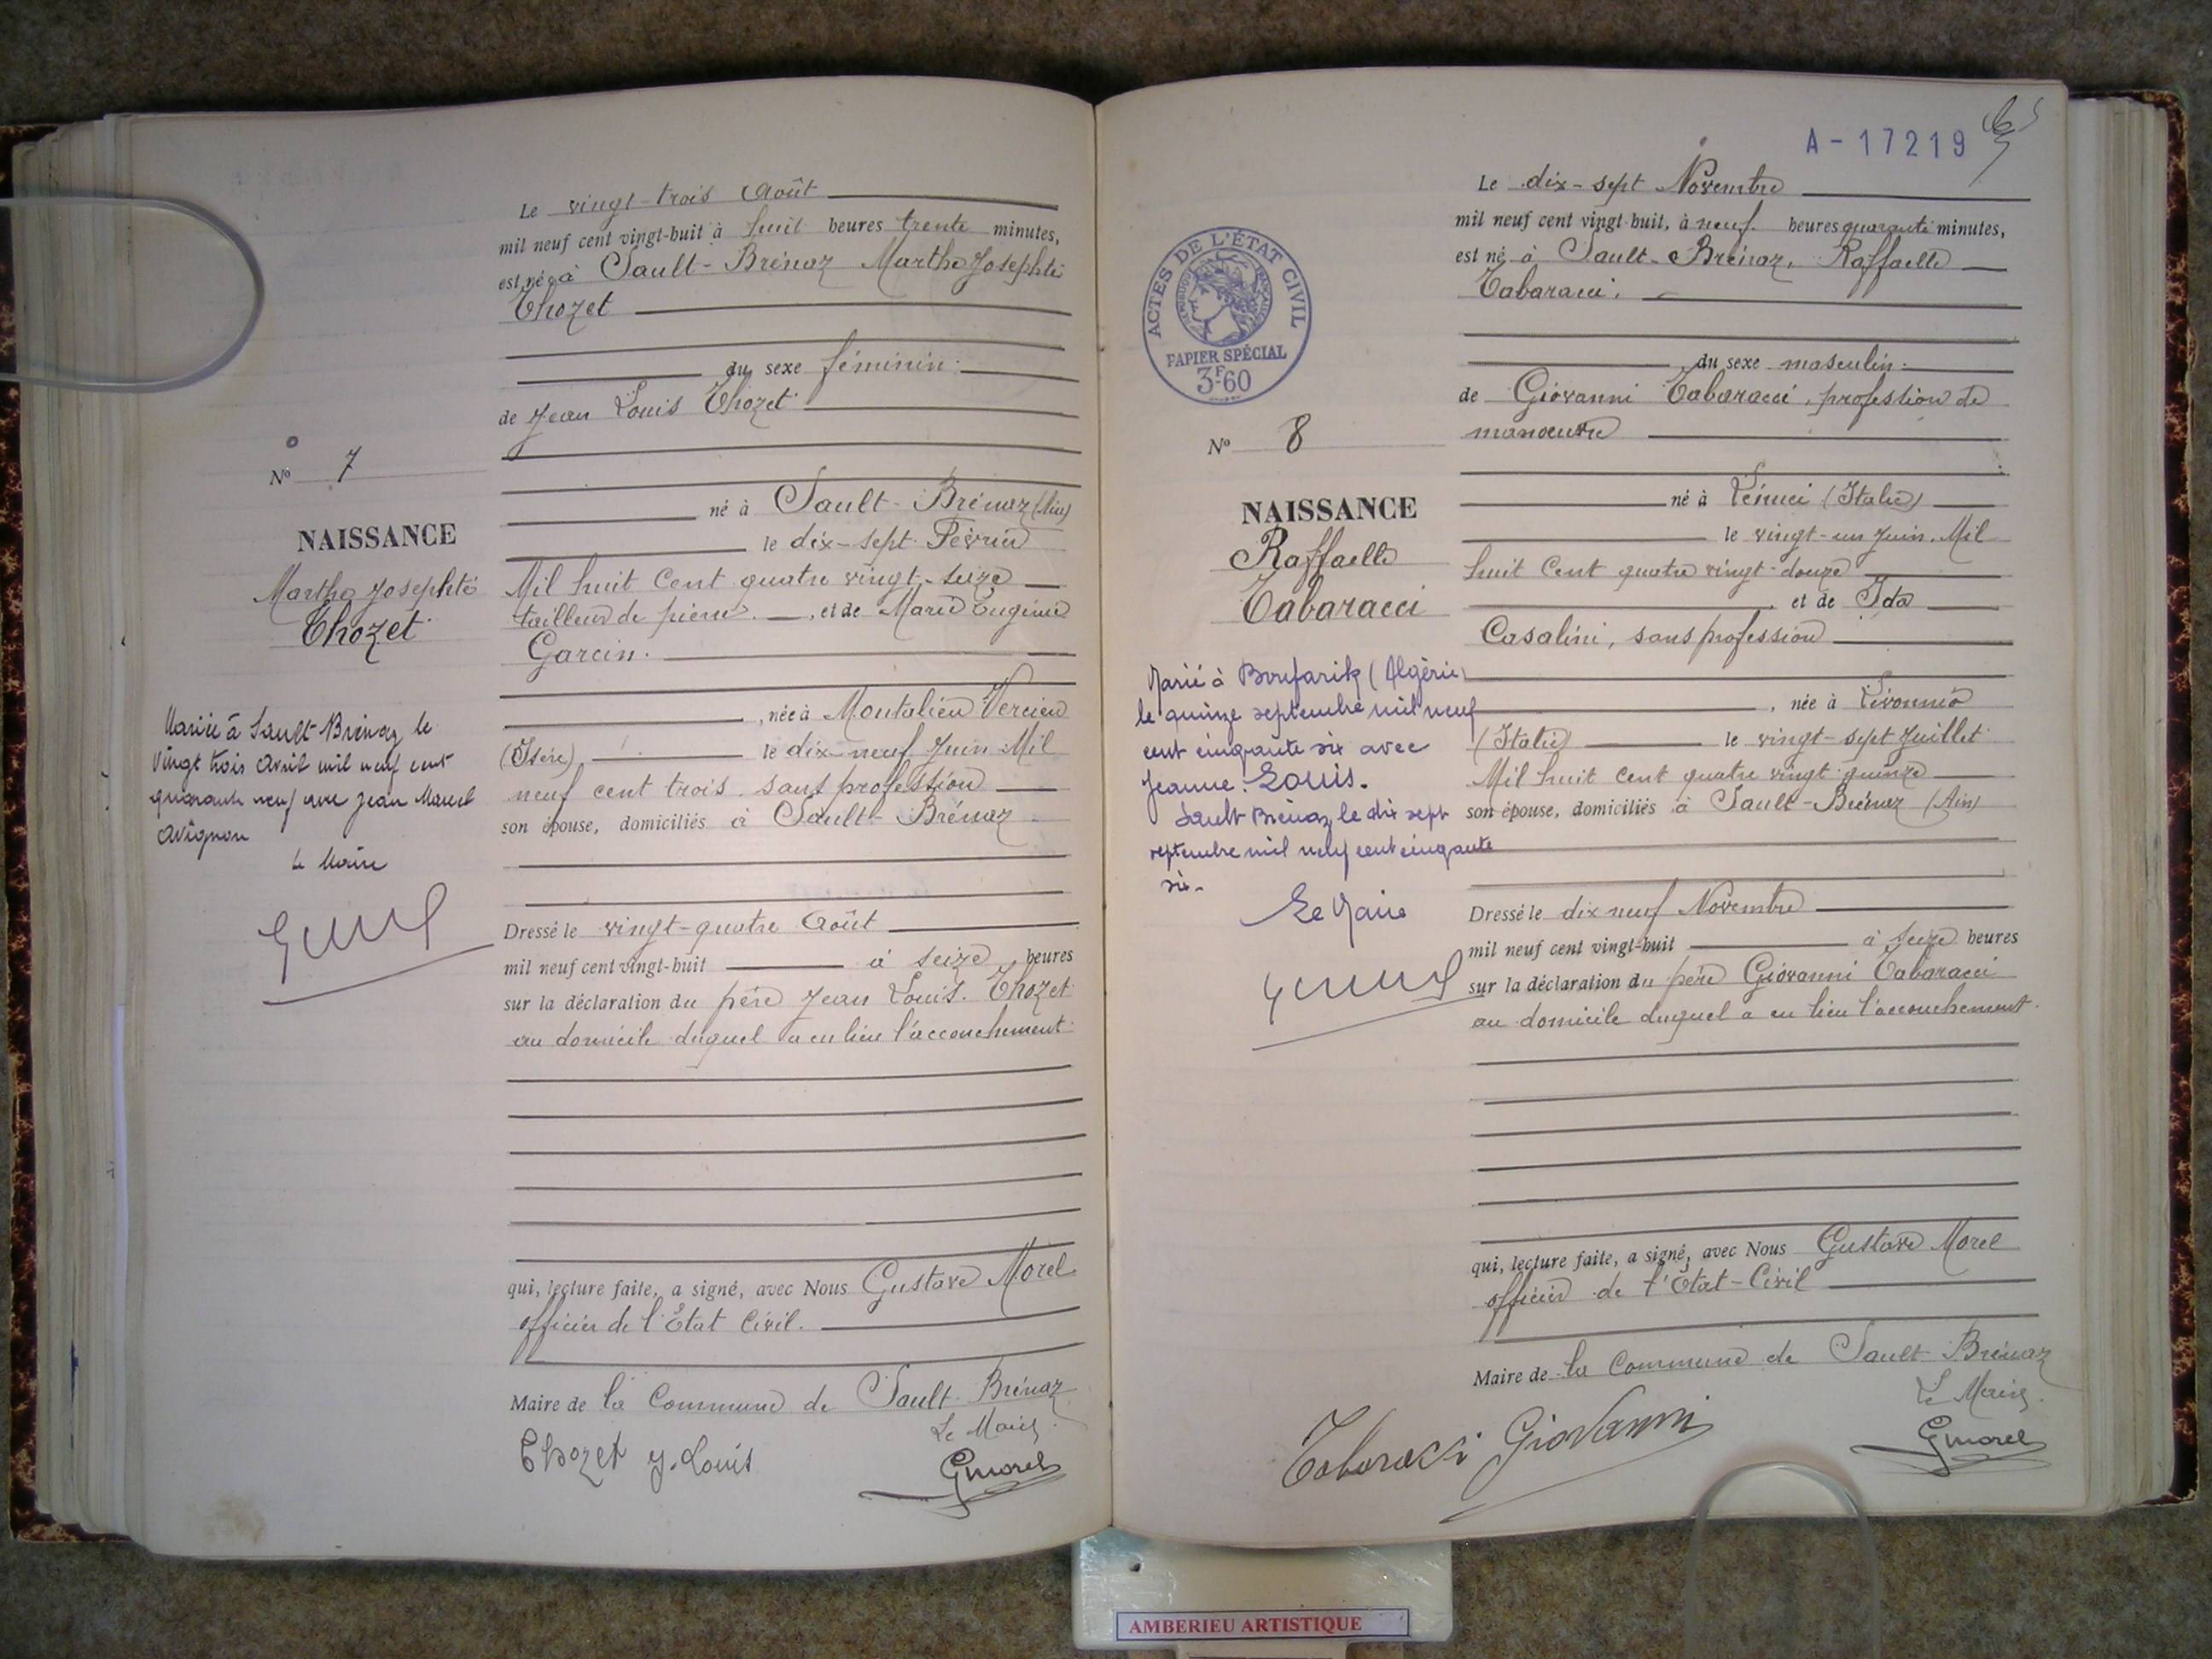 Le vingt-trois Août
mil neuf cent vingt-huit à huit heures trente minutes,
est née à Sault-Brénaz Marthe Josephte
Thozet
du sexe féminin
de Jean Louis Thozet
Nº 7
né à Sault-Brénaz (Ain)
NAISSANCE
le dix-sept Février
Marthe Josephte
Mil huit Cent quatre vingt-seize
Thozet
tailleur de pierres, et de Marie Eugénie
Garcin.
née à Montalieu Vercieu
(Isère) le dix-neuf Juin Mil
neuf cent trois sans profession
son épouse, domiciliés à Sault-Brénaz
Mariée à Sault-Brénaz le
vingt trois avril mil neuf cent
quarante neuf avec Jean Marcel
Avignon
Le Maire
Dressé le vingt-quatre Août
mil neuf cent vingt-huit à seize heures
sur la déclaration du père Jean Louis Thozet
au domicile duquel a eu lieu l'accouchement
qui, lecture faite, a signé, avec Nous Gustave Morel
officier de l'Etat Civil.
Maire de la Commune de Sault-Brénaz
Le Maire
Thozet J. Louis
GMorel
A-17219
Le dix-sept Novembre
mil neuf cent vingt-huit, à neuf heures quarante minutes,
est né à Sault-Brénaz, Raffaelle
Tabaracci.
ACTES DE L'ÉTAT CIVIL
PAPIER SPÉCIAL
3F60
du sexe masculin
de Giovanni Tabaracci, profession de
manoeuvre
Nº 8
né à (Italie)
NAISSANCE
le vingt-un Juin Mil
Raffaelle
huit Cent quatre vingt-douze
Tabaracci
et de Ida
Casalini, sans profession
née à
(Italie) le vingt-sept Juillet
Mil huit cent quatre vingt quinze
son épouse, domiciliés à Sault-Brénaz (Ain)
Marié à Boufarik (Algérie)
le quinze septembre mil neuf
cent cinquante six avec
Jeanne Louis.
Sault Brénaz le dix sept
septembre mil neuf cent cinquante
six.
Le Maire
Dressé le dix neuf Novembre
mil neuf cent vingt-huit à seize heures
sur la déclaration du père Giovanni Tabaracci
au domicile duquel a eu lieu l'accouchement
qui, lecture faite, a signé, avec Nous Gustave Morel
officier de l'Etat-Civil
Maire de la Commune de Sault-Brénaz
Le Maire
Tabaracci Giovanni
GMorel
AMBERIEU ARTISTIQUE